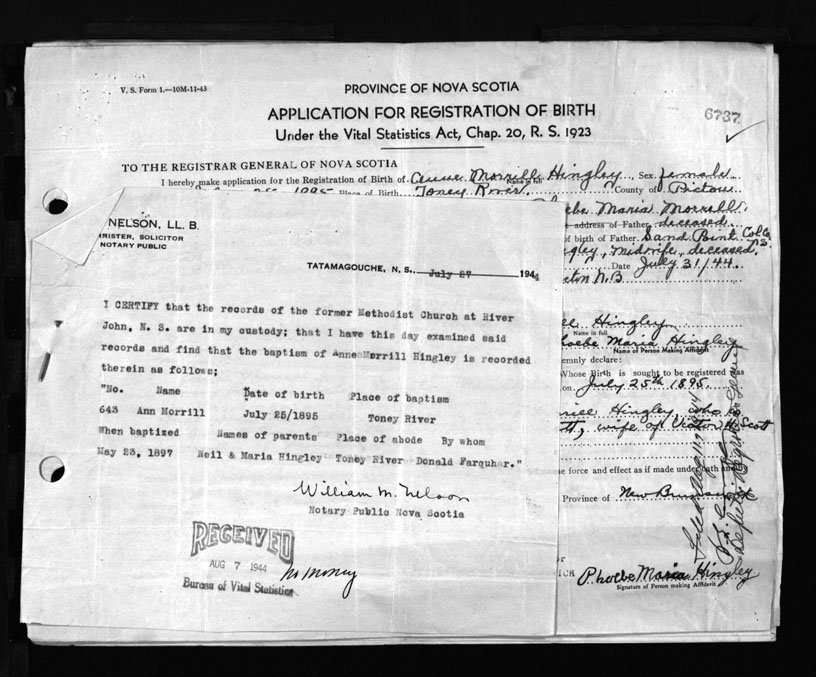 V. S. Form 1.—10M-11-43
PROVINCE OF NOVA SCOTIA
APPLICATION FOR REGISTRATION OF BIRTH
Under the Vital Statistics Act, Chap. 20, R. S. 1923
6737
TO THE REGISTRAR GENERAL OF NOVA SCOTIA
I hereby make application for the Registration of Birth of Anne Morrell Hingley, Sex female
1895 Place of Birth Toney River County of Pictou
Phoebe Maria Morrell
address of Father deceased
of birth of Father Sand Point Col Co NS
Hingley, midwife, deceased
Date July 31/44
N.B
NELSON, LL. B.
RRISTER, SOLICITOR
NOTARY PUBLIC
TATAMAGOUCHE, N. S. July 27 1944
I CERTIFY that the records of the former Methodist Church at River
John, N. S. are in my custody; that I have this day examined said
records and find that the baptism of Anne Morrill Hingley is recorded
therein as follows;
"No. Name Date of birth Place of baptism
643 Ann Morrill July 25/1895 Toney River
When baptized Names of parents Place of abode By whom
May 23, 1897 Neil & Maria Hingley Toney River Donald Farquhar."
William M. Nelson
Notary Public Nova Scotia
RECEIVED
AUG 7 1944
Bureau of Vital Statistics
no money
Hingley
Name in full
Phoebe Maria Hingley
Name of Person Making Affidavit
emnly declare:
Whose Birth is sought to be registered was
on July 25th 1895
Hingley, who is
wife of Victor H. Scott
e force and effect as if made under oath and
Province of New Brunswick
Phoebe Maria Hingley
Signature of Person making Affidavit